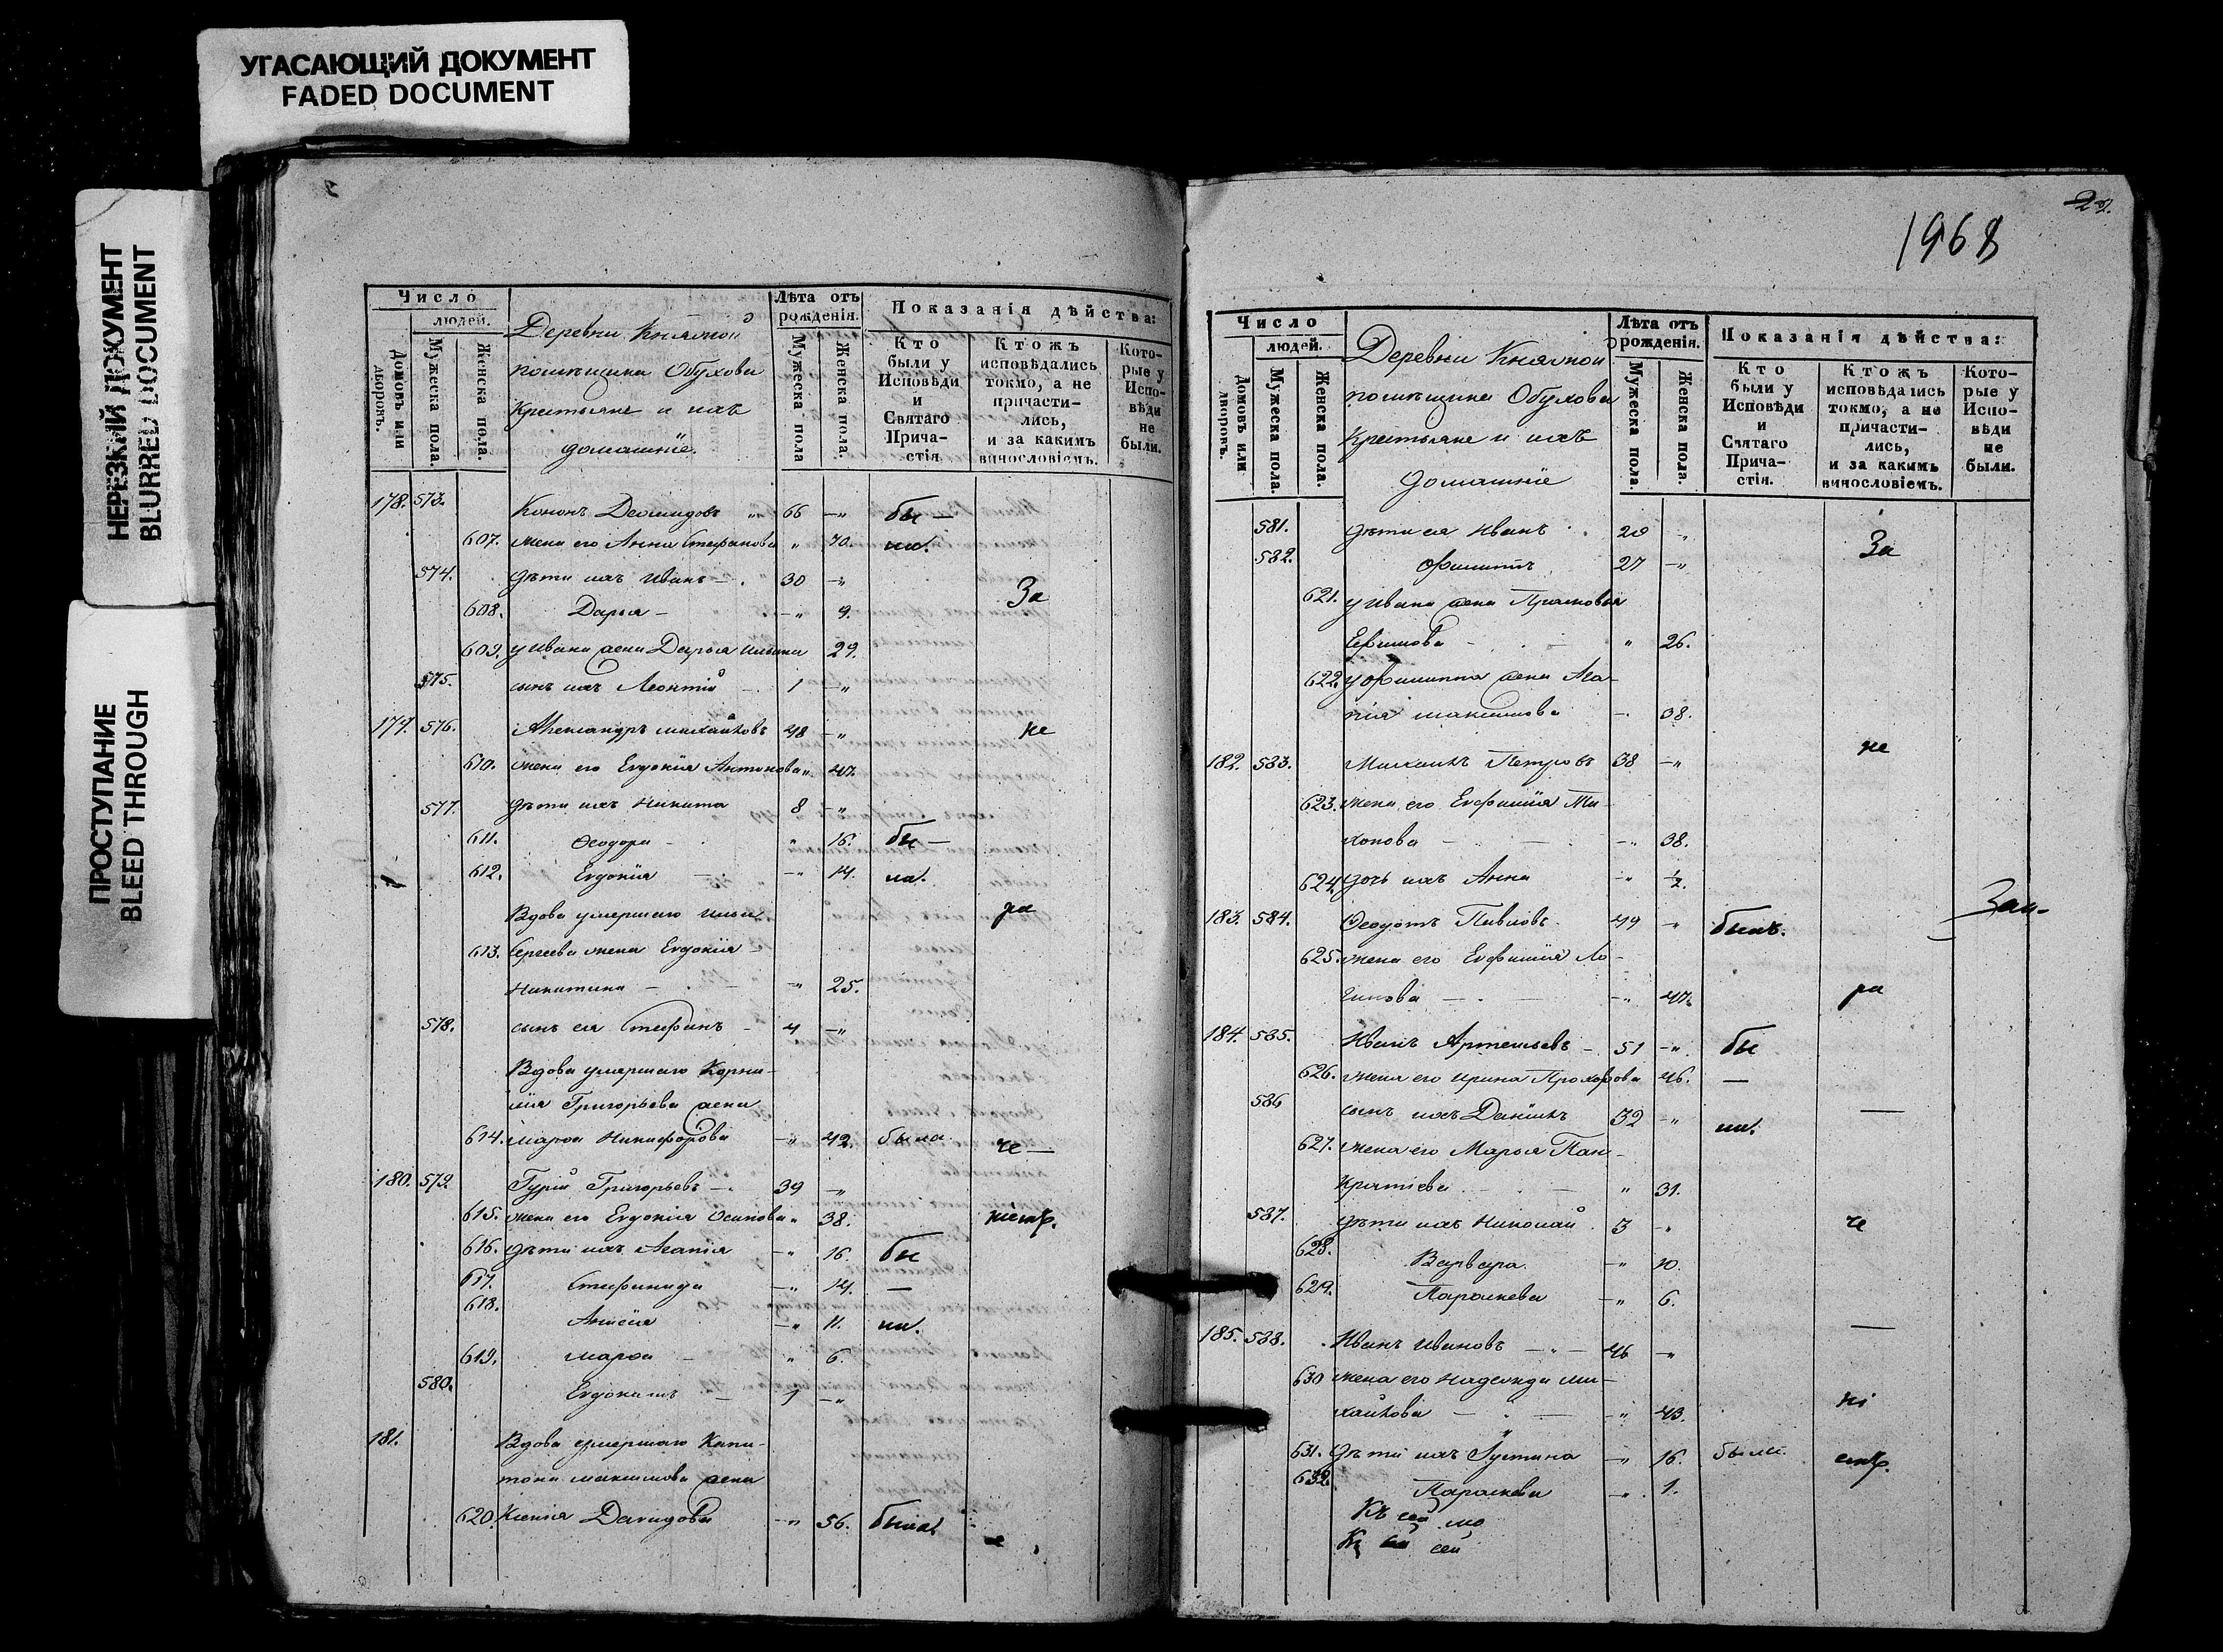 УГАСАЮЩИЙ ДОКУМЕНТ
FADED DOCUMENT
НЕРЕЗКИЙ ДОКУМЕНТ
BLURRED DOCUMENT
ПРОСТУПАНИЕ
BLEED THROUGH
Число
людей.
Домовъ или дворовъ.
Мужеска пола.
Женска пола.
Деревни
помѣщика Обухова
Крестьяне и ихъ
домашніе.
Лѣта отъ рожденія.
Мужеска пола
Женска пола.
Показанія дѣйства:
Кто были у Исповѣди и Святаго Прича- стія
Ктожъ исповѣдались токмо, а не причасти- лись, и за какимъ винословіемъ.
Кото- рые у Испо- вѣди не были.
178. 573. Кононъ " 66 —" бы —
607. жена его Анна Стефанова " 70. ли.
574. дѣти ихъ Иванъ — 30 —"
За
608. Дарья — —" 9.
609. у Ивана жена Дарья Ильина 29.
575. сынъ ихъ Леонтій — 1 —"
179. 576. Александръ Михайловъ 48 —" не
610. жена его Евдокія Антонова " 47.
577. дѣти ихъ Никита 8 —"
611. Ѳеодора — " 16. бы —
612. Евдокія — —" 14. ли.
Вдова умершаго Ильи ра
613. Сергеева жена Евдокія —
Никитина — —" 25.
578. сынъ ея Стефанъ — 4 —"
Вдова умершаго Корни-
лія Григорьева жена
614. Марѳа Никифорова —" 42. была.
че —
180. 579. Гурій Григорьевъ — 39 —"
615. жена его Евдокія Осипова " 38. ніемъ.
616. дѣти ихъ Агапія —" 16. бы
617. Стефанида —" 14. —
618. Анисія —" 11. ли.
619. Марѳа — " 6.
580. Евдокимъ — 1 —"
181. Вдова умершаго Капи-
тона Максимова жена
620. Ксенія Давидова —" 56. была.
1968
Число
людей.
Домовъ или дворовъ.
Мужеска пола.
Женска пола.
Деревни
помѣщика Обухова
Крестьяне и ихъ
домашніе
Лѣта отъ рожденія.
Мужеска пола.
Женска пола.
Показанія дѣйства:
Кто были у Исповѣди и Святаго Прича- стія.
Ктожъ исповѣдались токмо, а не причасти- лись, и за какимъ винословіемъ.
Кото- рые у Испо- вѣди не были.
581. дѣти ея Иванъ 28 "
За
582. Филиппъ 27 —"
621. у Ивана жена Прасковья
Ефимова — " 26.
622. у Филиппа жена Ага-
пія Максимова — 38.
не
182. 583. Михаилъ Петровъ 38 —"
623. жена его Евфимія Ти-
хонова — —" 38.
624. дочь ихъ Анна —" ½.
183. 584. Ѳеодотъ Павловъ 49 " былъ.
625. жена его Евфимія Ло-
гинова — —" 47.
ра
184. 585. Иванъ Артемьевъ — 51 —" бы
626. жена его Ирина Прохорова 46. —
586 сынъ ихъ Даніилъ 32 —" ли.
627. жена его Марья Пан-
кратіева — " 31.
587. дѣти ихъ Николай 3 —" че
628. Варвара —" 10.
629. Параскева —" 6.
185. 588. Иванъ Ивановъ —"— 46 —"
630 жена его Надежда Ми-
хайлова — —" 43.
ні
631. дѣти ихъ Іустина —" 16. были.
емъ.
632. Параскева —" 1.